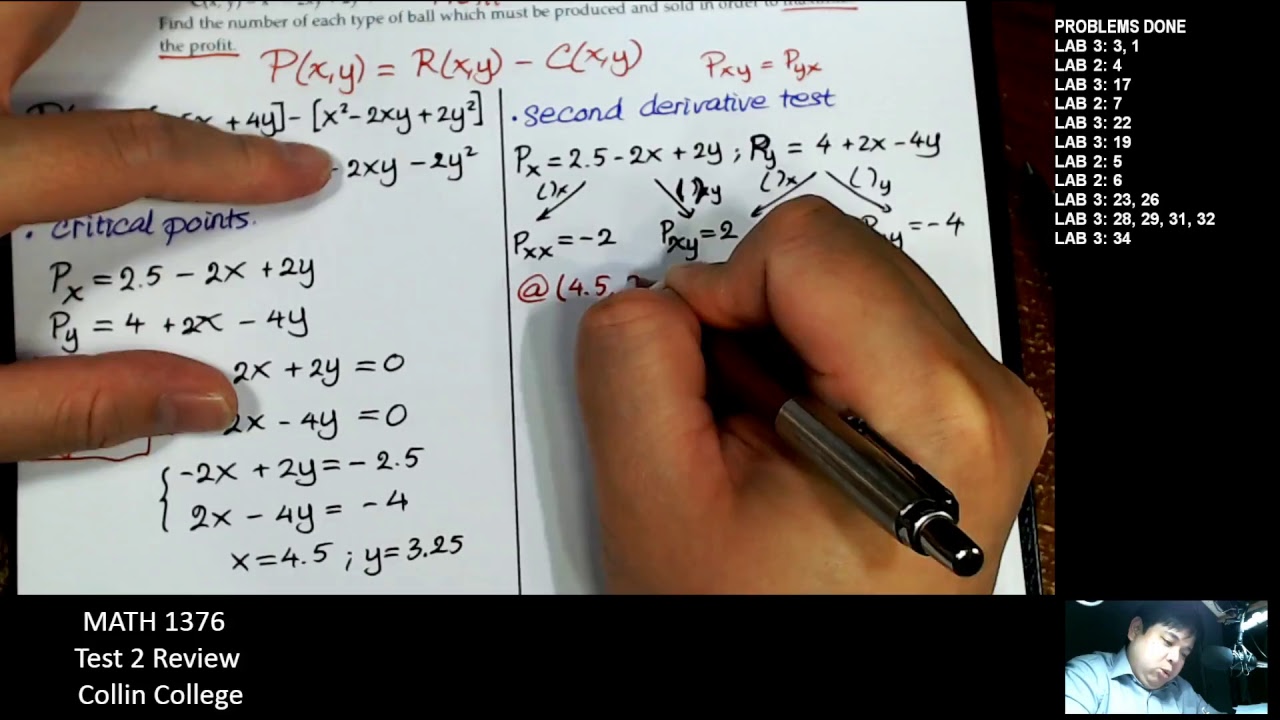 Find the number of each type of ball which must be produced and sold in order to
the profit.
P(x,y) = R(x,y) - C(x,y)
Pxy = Pyx
+ 4y] - [x² - 2xy + 2y²]
- 2xy - 2y²
• critical points.
Px = 2.5 - 2x + 2y
Py = 4 + 2x - 4y
2x + 2y = 0
2x - 4y = 0
{ -2x + 2y = - 2.5
2x - 4y = - 4
x = 4.5 ; y = 3.25
• second derivative test
Px = 2.5 - 2x + 2y ; Py = 4 + 2x - 4y
( )x ( )y ( )x ( )y
Pxx = -2 Pxy = 2 = -4
@ (4.5,
PROBLEMS DONE
LAB 3: 3, 1
LAB 2: 4
LAB 3: 17
LAB 2: 7
LAB 3: 22
LAB 3: 19
LAB 2: 5
LAB 2: 6
LAB 3: 23, 26
LAB 3: 28, 29, 31, 32
LAB 3: 34
MATH 1376
Test 2 Review
Collin College